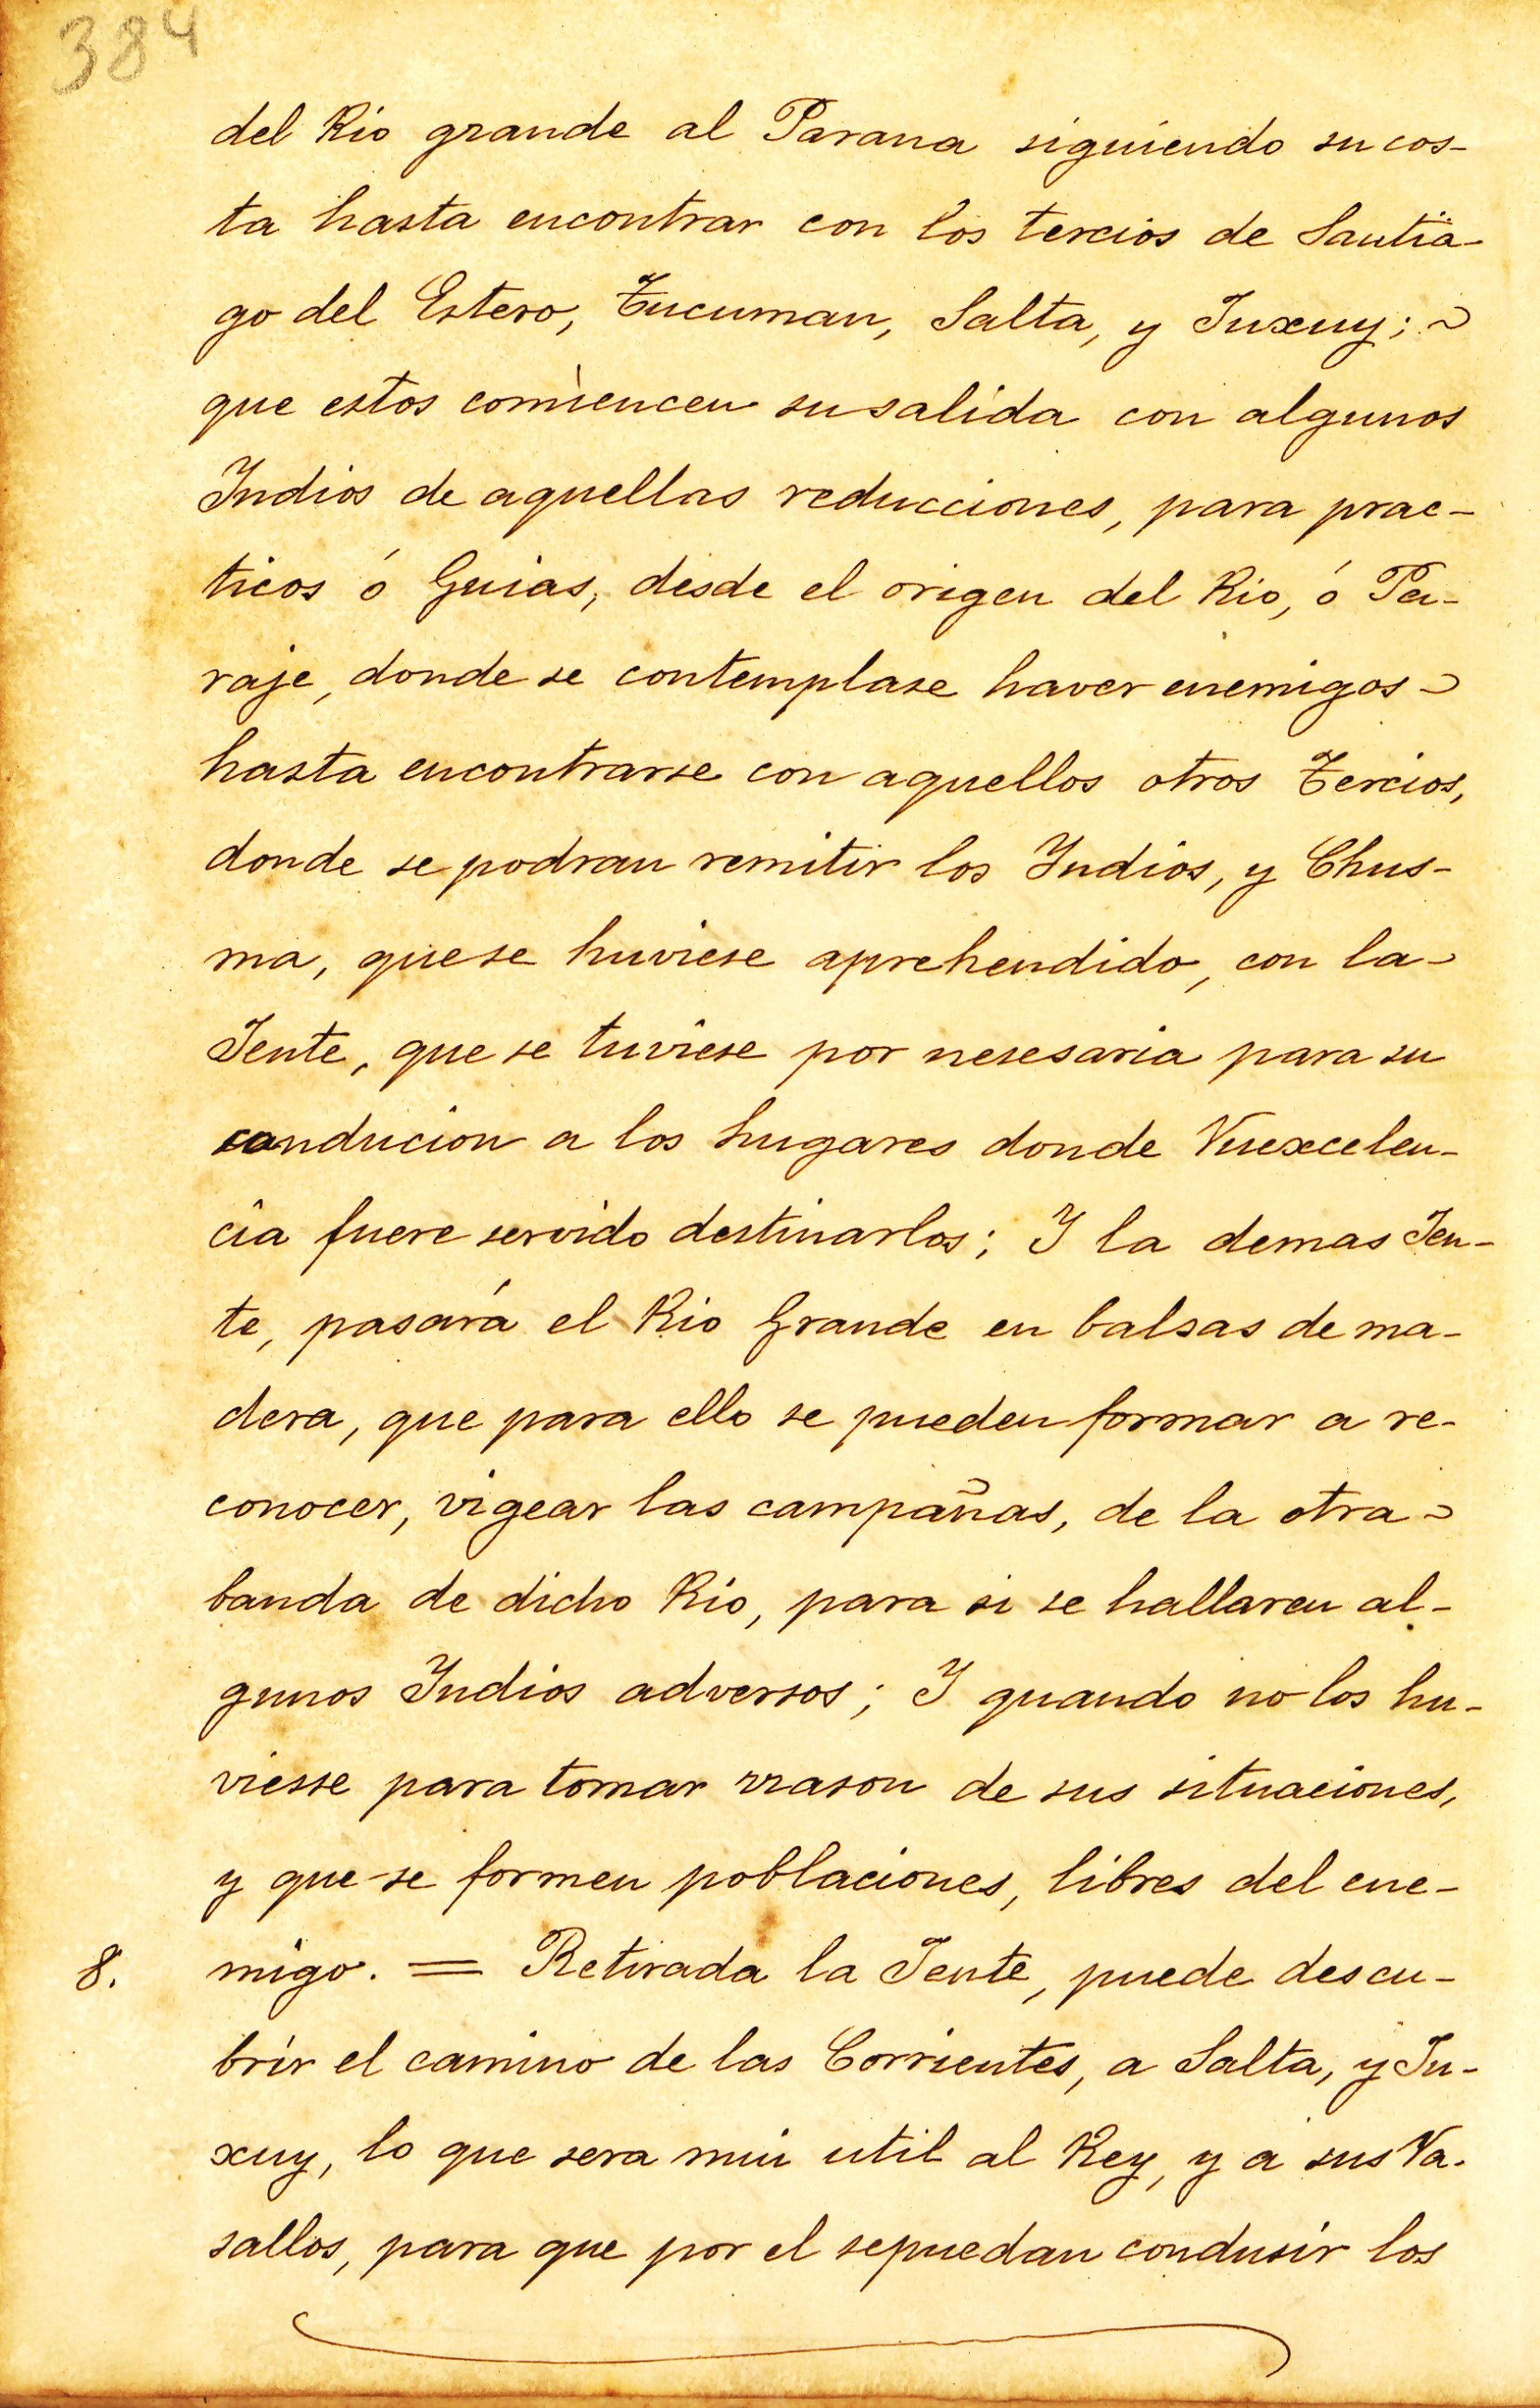 384
del Rio grande al Parana siguiendo su cos-
ta hasta encontrar con los tercios de Santia-
go del Estero, Tucuman, Salta, y Juxuy; ~
que estos comiencen su salida con algunos
Indios de aquellas reducciones, para prac-
ticos ó Guias, desde el origen del Rio, ó Pa-
raje, donde se contemplase haver enemigos ~
hasta encontrarse con aquellos otros Tercios,
donde se podran remitir los Indios, y Chus-
ma, que se huviese aprehendido, con la ~
Jente, que se tuviese por nesesaria para su
conducion a los Lugares donde Vuexcelen-
cia fuere servido destinarlos; I la demas Jen-
te, pasará el Rio Grande en balsas de ma-
dera, que para ello se pueden formar a re-
conocer, vigear las campañas, de la otra ~
banda de dicho Rio, para si se hallaren al-
gunos Indios adversos; I quando no los hu-
viesse para tomar rrason de sus situaciones,
y que se formen poblaciones, libres del ene-
8. migo. = Retirada la Jente, puede descu-
brir el camino de las Corrientes, a Salta, y Ju-
xuy, lo que sera mui util al Rey, y a sus Va-
sallos, para que por el sepuedan condusir los